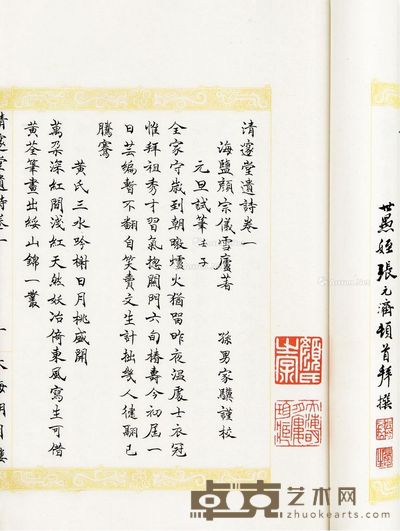 世愚姪張元濟頓首拜撰
清邃堂遺詩卷一
海鹽顏宗儀雪廬著 孫男家驥謹校
元旦試筆壬子
全家守歲到朝暾爐火猶留昨夜温處士衣冠
惟拜祖秀才習氣揔關門六旬椿壽今初屆一
日芸編暫不翻自笑賣文生計拙幾人健翮已
騰騫
黃氏三水吟榭日月桃盛開
萬朶深紅間淺紅天然妖冶倚東風寫生可借
黃荃筆畫出綏山錦一叢
清邃堂遺詩卷一
一
卓克艺术网
www.zhuokearts.com